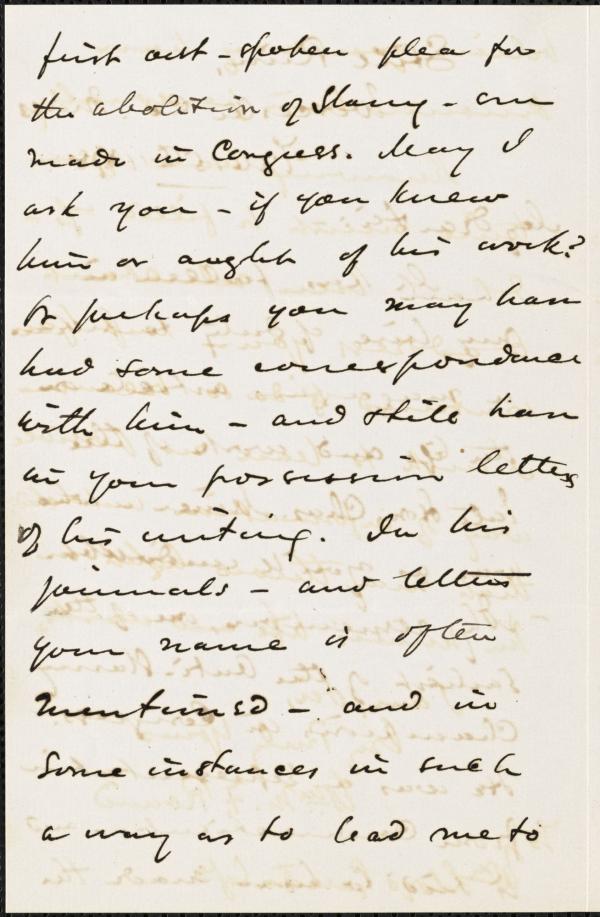 first out-spoken plea for
the abolition of Slavery - ever
made in Congress. May I
ask you - if you knew
him or aught of his work?
Or perhaps you may have
had some correspondence
with him - and still have
in your possession letters
of his writing. In his
journals - and letters
your name is often
mentioned - and in
some instances in such
a way as to lead me to